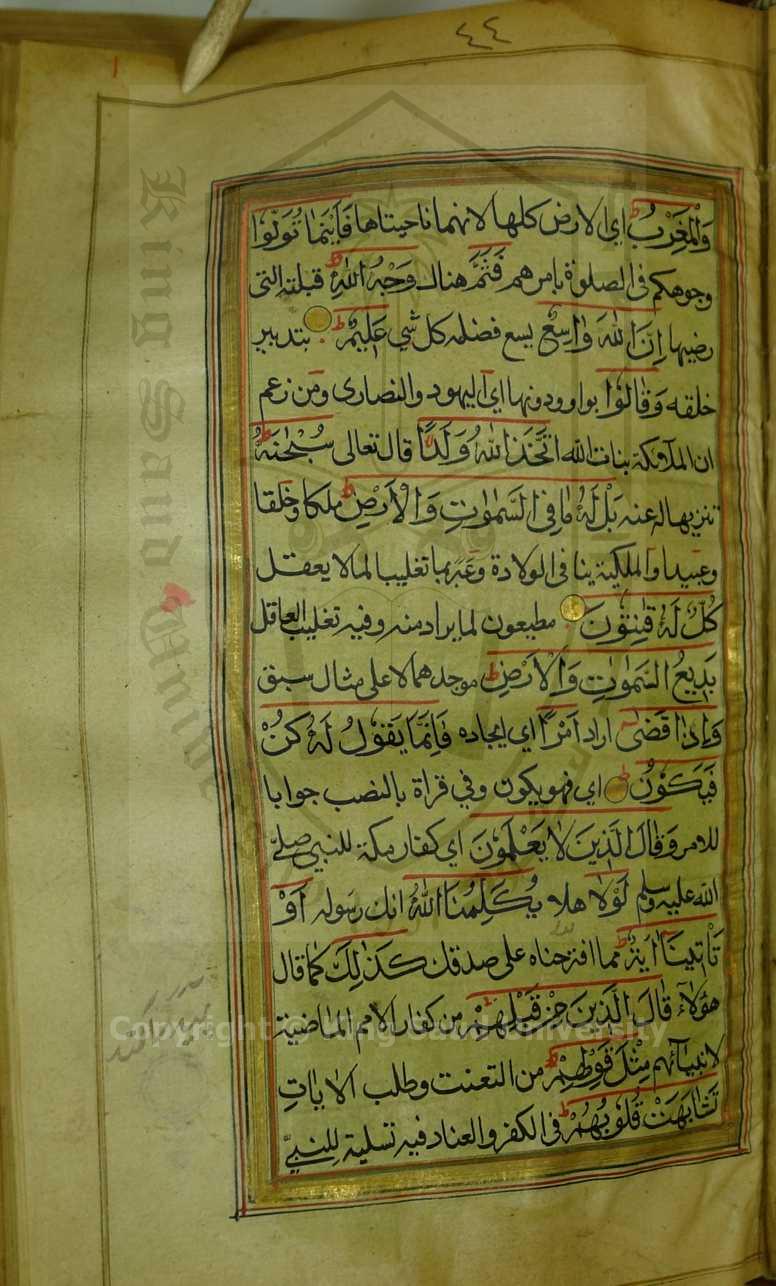 ٤٤
وَالْمَغْرِبُ اي الارض كلها لانهما ناحيتاها فَاَيْنَمَا تُوَلُّوْا
وجوهكم في الصلوة بامرهم فَثَمَّ هناك وَجْهُ اللّٰهِ قبلته التي
رضيها اِنَّ اللّٰهَ وَاسِعٌ يسع فضله كل شي عَلِيْمٌ بتدبير
خلقه وَقَالُوْا بواو ودونها اي اليهود والنصارى ومن زعم
ان الملآئكة بنات الله اتَّخَذَ اللّٰهُ وَلَدًا قال تعالى سُبْحٰنَهٗ
تنزيها له عنه بَلْ لَهٗ مَا فِي السَّمٰوٰتِ وَالْاَرْضِ ملكا وخلقا
وعبيدا والملكية ينافي الولادة وعبر بما تغليبا لما لا يعقل
كُلٌّ لَهٗ قٰنِتُوْنَ مطيعون لما يراد منه وفيه تغليب العاقل
بَدِيْعُ السَّمٰوٰتِ وَالْاَرْضِ موجدهما لا على مثال سبق
وَاِذَا قَضٰى اراد اَمْرًا اي ايجاده فَاِنَّمَا يَقُوْلُ لَهٗ كُنْ
فَيَكُوْنُ اي فهو يكون وفي قراة بالنصب جوابا
للامر وَقَالَ الَّذِيْنَ لَا يَعْلَمُوْنَ اي كفار مكة للنبي صلى
الله عليه وسلم لَوْلَا هلا يُكَلِّمُنَا اللّٰهُ انك رسوله اَوْ
تَاْتِيْنَا اٰيَةٌ مما اقترحناه على صدقك كَذٰلِكَ كما قال
هؤلاء قَالَ الَّذِيْنَ مِنْ قَبْلِهِمْ من كفار الامم الماضية
لانبيآئهم مِثْلَ قَوْلِهِمْ من التعنت وطلب الايات
تَشَابَهَتْ قُلُوْبُهُمْ في الكفر والعناد فيه تسلية للنبيّ
King Saud University
Copyright © King Saud University